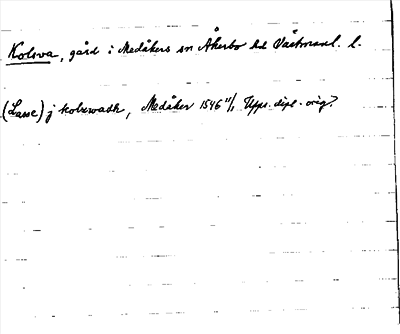 Kolsva, gård i Medåkers sn Åkerbo hd Västmanl. l.
(Lasse) j kolxwadh, Medåker 1546 11/1 Upps. dipl. orig.